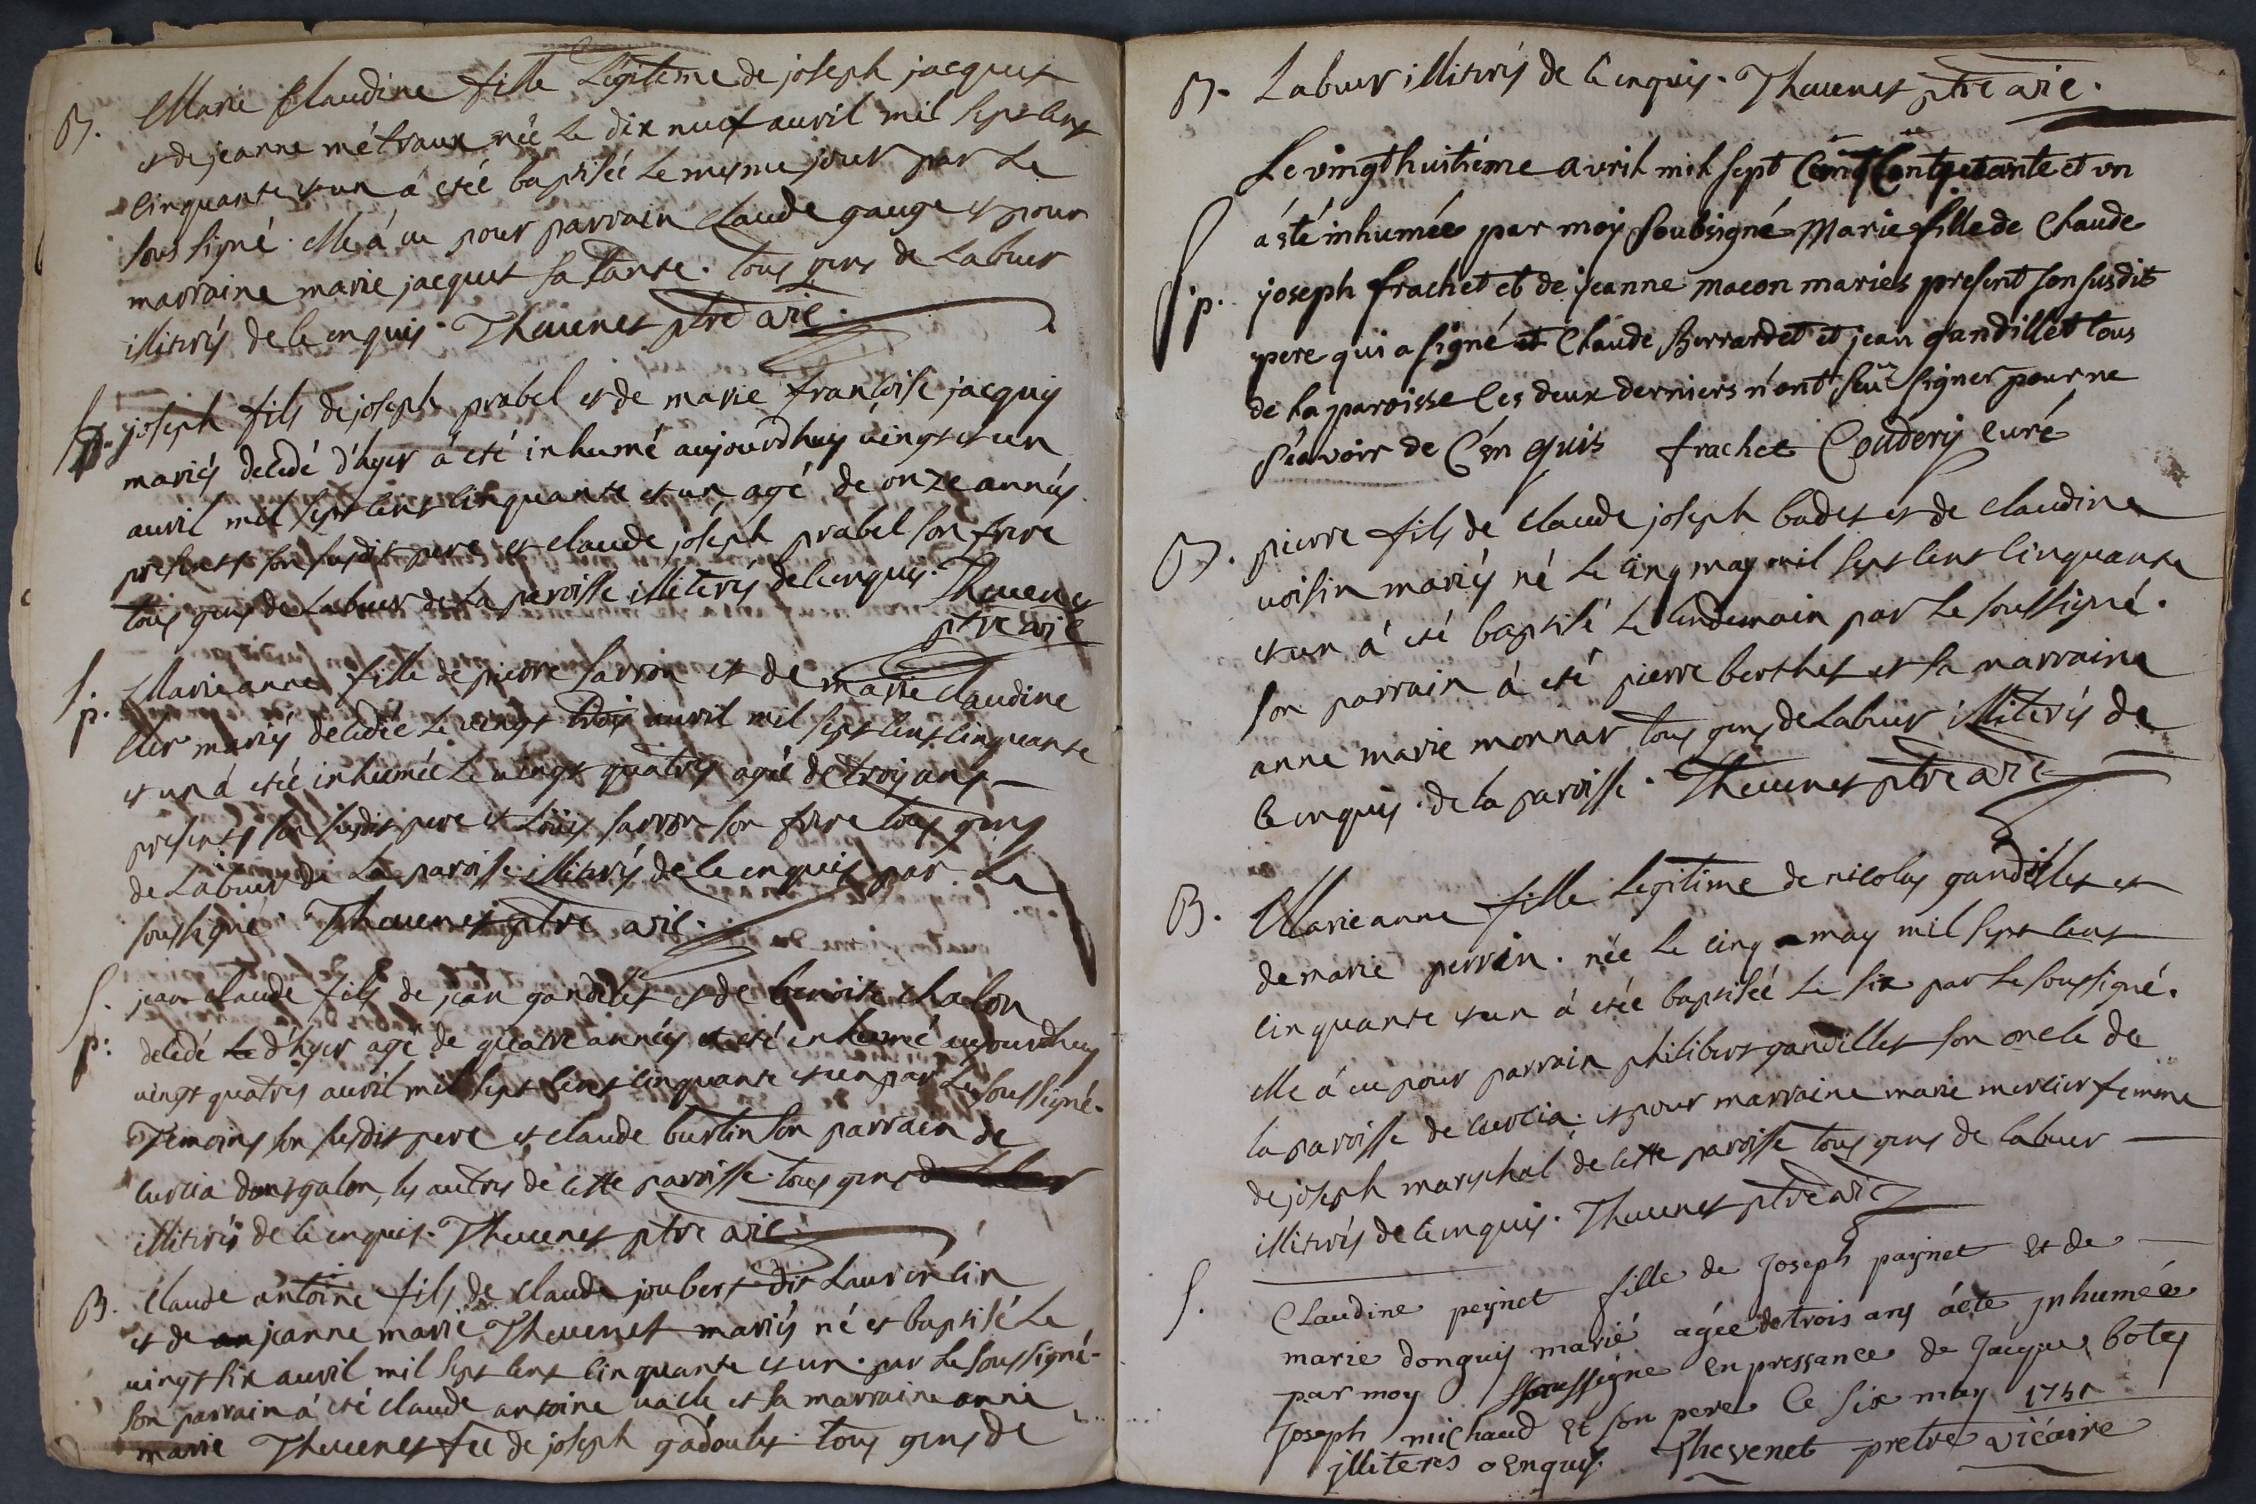 B. Marie Claudine fille Legitime de joseph jacquet
et de jeanne métraux née Le dix neuf auril mil sept Cent
Cinquante et un á etéé baptisée Le mesme jour par Le
sous signé. elle á eu pour parrain Claude gauge et pour
marraine marie jacquet sa tante. tous gens de Labeur
illiterés de ce enquis. Theuenet ptre vic.
S. p. joseph fils de joseph prabel et de marie francoise jacquy
mariés decedé d'hyer á eté inhumé aujourdhuy uingt et un
auril mil sept cent cinquante et un agé de onze années
presents son susdit pere et claude joseph prabel son frere
tous gens de Labeur de La paroisse illiterés de ce enquis. Theuenet
ptre vic
S. p. Marie anne fille de pierre Sarron et de marie Claudine
mariés decedée Le uingt trois auril mil sept cent cinquante
et un á etée inhumée Le uingt quatres agée de trois ans
presents son susdit pere et Loüis sarron son frere tous gens
de Labeur de La paroisse illiterés de ce enquis par Le
soussigné Theuenet ptre vic.
S. p: jean claude fils de jean gandilet et de benoite chalon
decedé Le d'hyer agé de quatre années et eté inhumé aujourdhuy
uingt quatres auril mil sept cent cinquante et un par Le soussigné.
Temoins son susdit pere et claude burtin son parrain de
curcia dongalon, les autres de cette paroisse tous gens de Labeur
illiterés de ce enquis. Theuenet ptre vic.
B. Claude antoine fils de Claude joubert dit Laurencin
et de jeanne marie Theuenet mariés né et baptisé Le
uingt six auril mil sept cent cinquante et un. par Le soussigné.
son parrain á eté claude antoine uacle et sa marraine anne
marie Theuenet fee de joseph gadoulet. tous gens de
B. Labeur illiterés de ce enquis. Theuenet ptre vic.
Le vingt huitiéme avril mil sept Cent Cinquante et vn
S. p. á eté inhumée par moy soubsigné Marie fille de Claude
joseph frachet et de jeanne macon mariés present son susdit
pere qui a signé et Claude Berrardet et jean gandillet tous
de la paroisse les deux derniers n'ont sçu signer pour ne
sçavoir de C'en quis frachet Coudery curé
B. pierre fils de Claude joseph badet et de claudine
uoisin mariés né Le cinq may mil sept cent cinquante
et un á eté baptisé Le lendemain par Le soussigné.
son parrain á eté pierre berthet et sa marraine
anne marie monnar tous gens de Labeur illiterés de
ce enquis. de la paroisse. Theuenet ptre vic
B. Marie anne fille Legitime de nicolas gandillet et
de marie perrin. née Le cinq may mil sept cent
cinquante et un á etée baptisée Le six par Le soussigné.
elle á eu pour parrain philibert gandillet son oncle de
la paroisse de curcia. et pour marraine marie mercier femme
de joseph mareschal de cette paroisse tous gens de labeur
illiterés de ce enquis. Theuenet ptre vic
S. Claudine peynet fille de Joseph paynet Et de
marie donguy marié agée de trois ans áete jnhumée
par moy soussigne En pressance de Jacque botey
Joseph michaud Et son pere ce six may 1751
jlliteres Enquis. Thevenet pretre vicaire